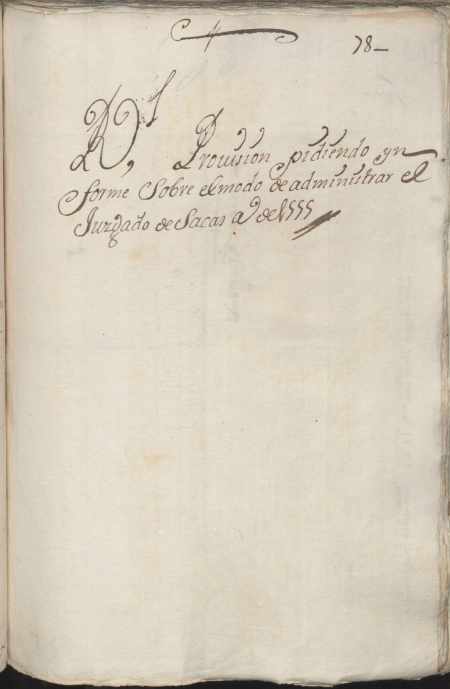 78
Rl, Provision pidiendo yn
forme Sobre el modo de administrar el
Juzgado de Sacas ao de 1555